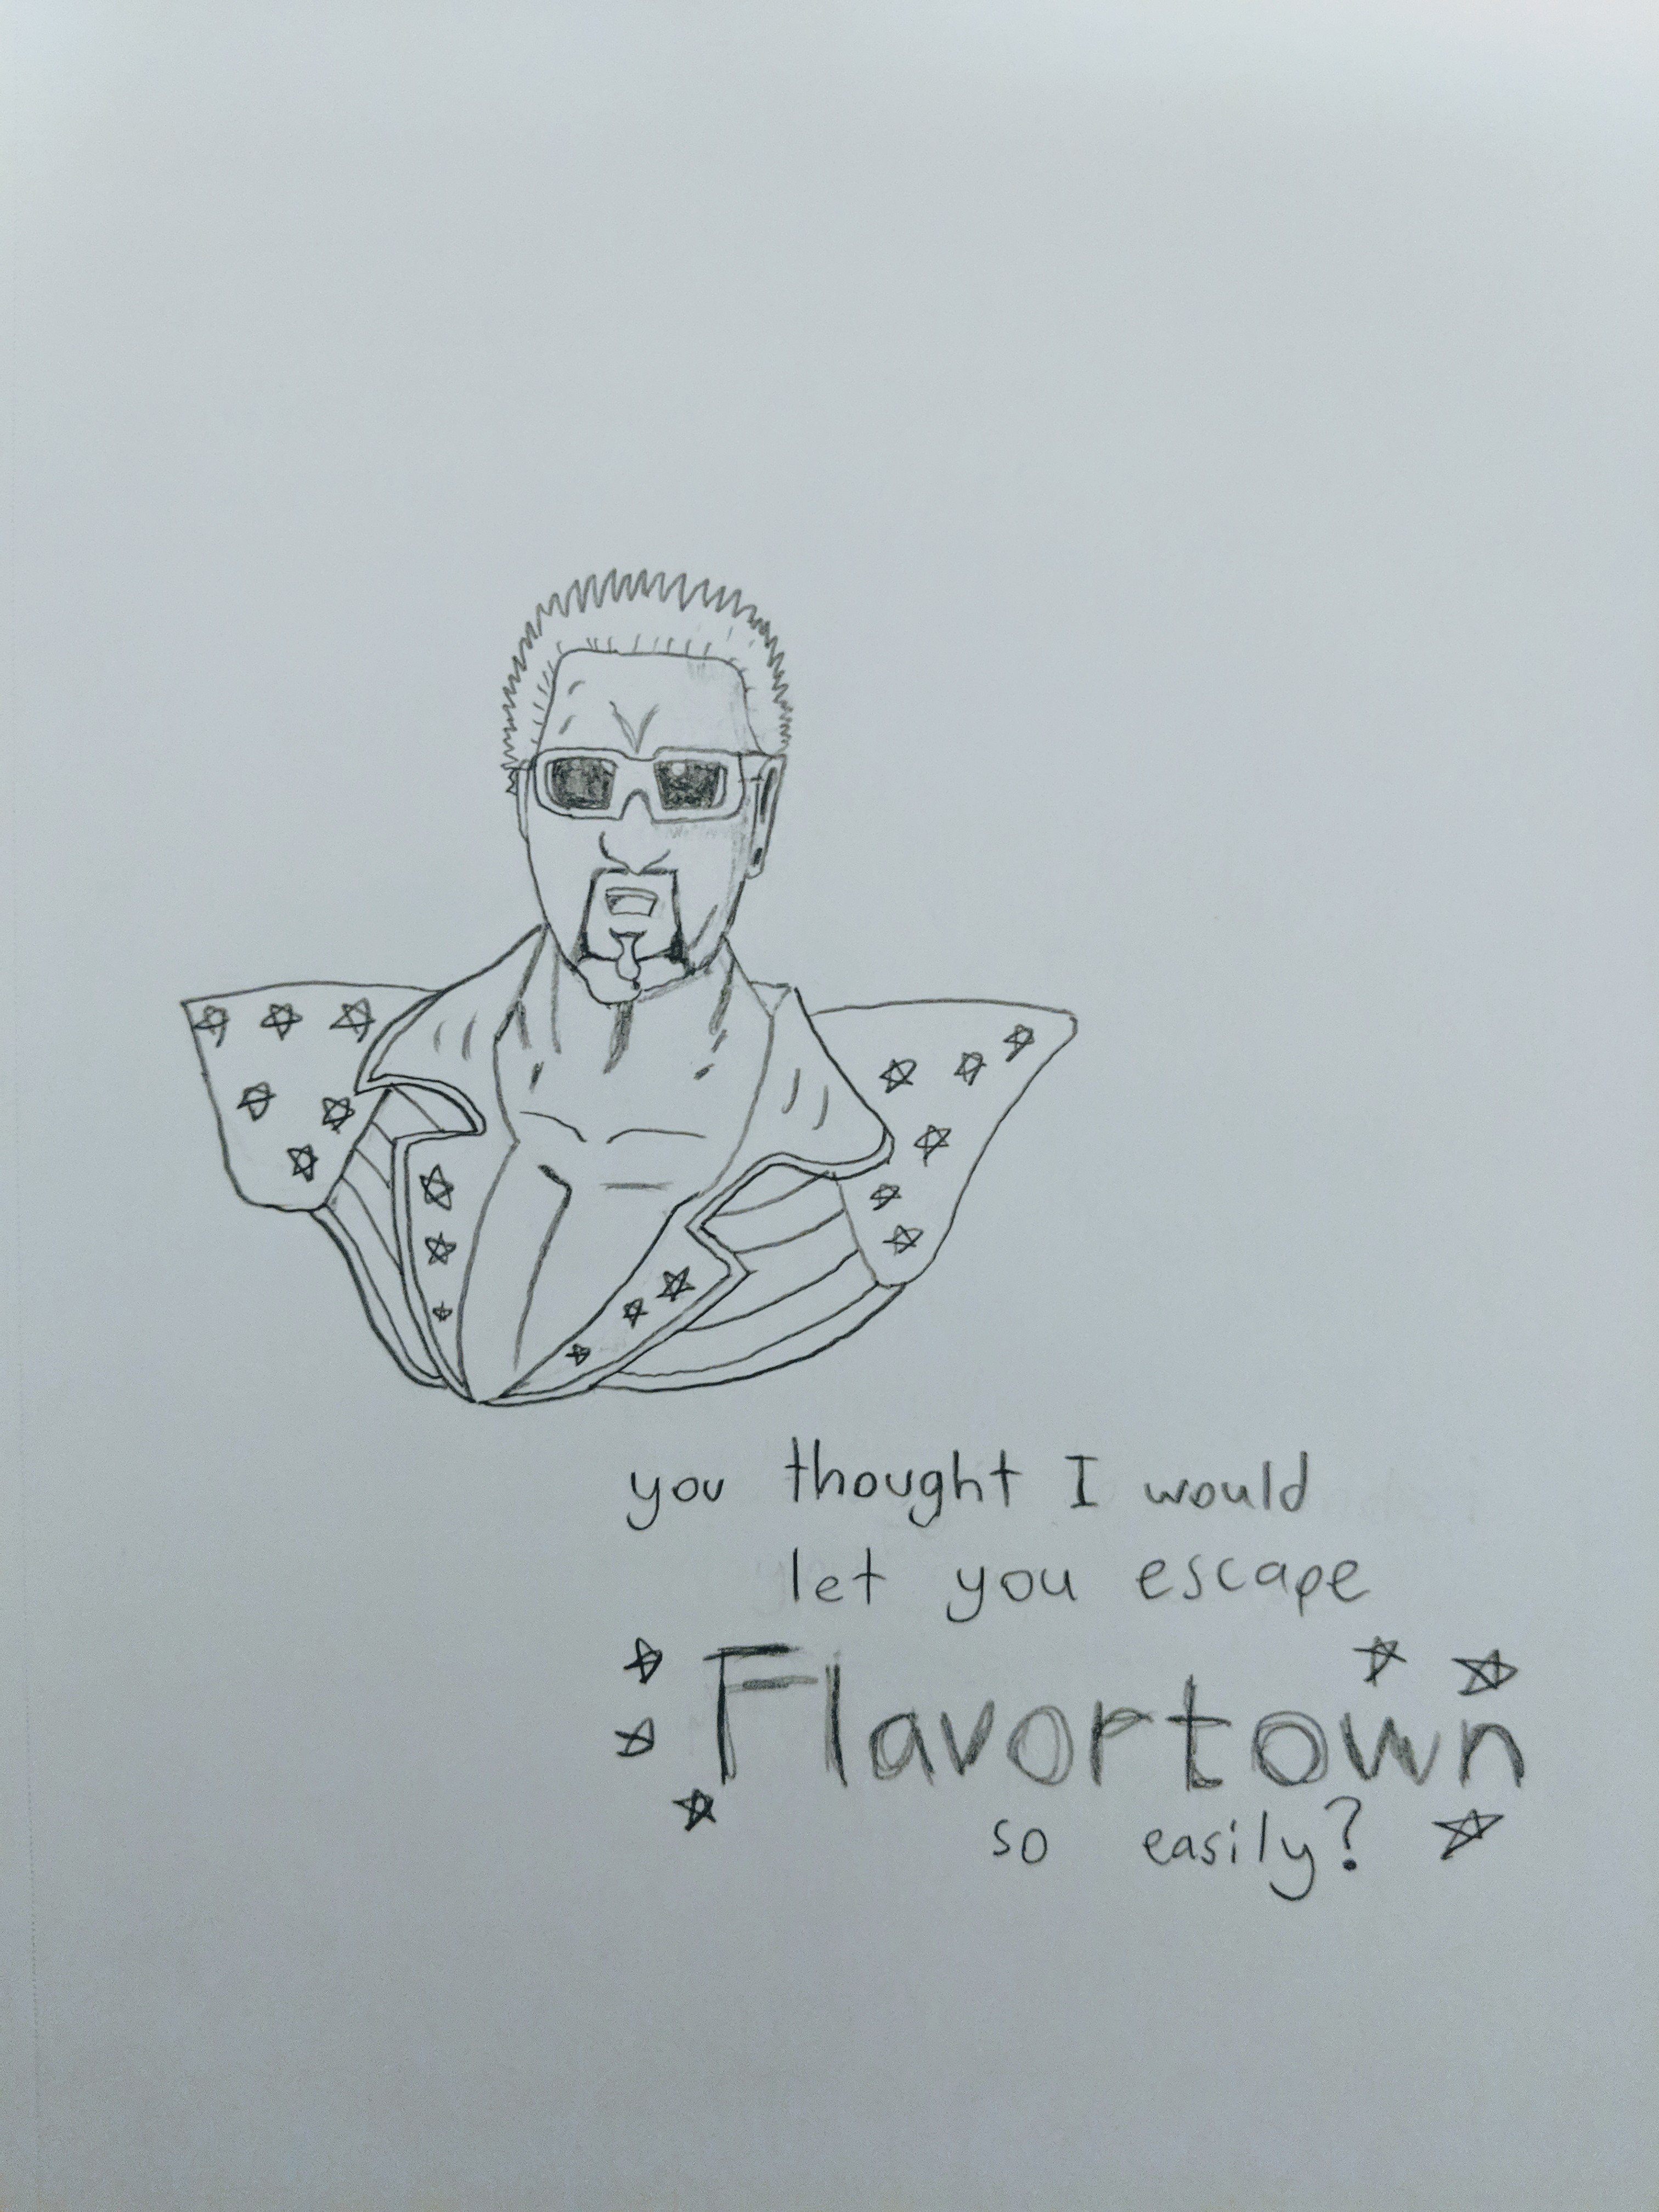 you thought I would
let you escape
Flavortown
so easily?